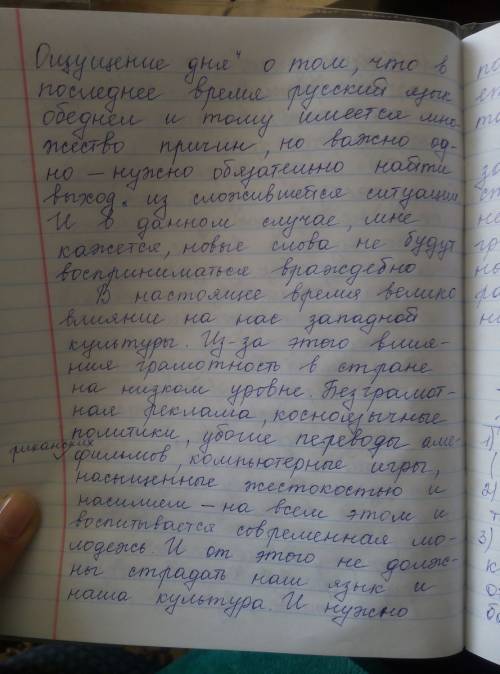 Ощущение дня" о том, что в
последнее время русский язык
обеднел и тому имеется мно-
жество причин, но важно од-
но – нужно обязательно найти
выход из сложившейся ситуации
И в данном случае, мне
кажется, новые слова не будут
восприниматься враждебно
В настоящее время велико
влияние на нас западной
культуры. Из-за этого влия-
ния грамотность в стране
на низком уровне. Безграмот-
ная реклама, косноязычные
политики, убогие переводы аме-
риканских фильмов, компьютерные игры,
насыщенные жестокостью и
насилием – на всем этом и
воспитывается современная мо-
лодежь. И от этого не долж-
ны страдать наш язык и
наша культура. И нужно
1)
2)
3)